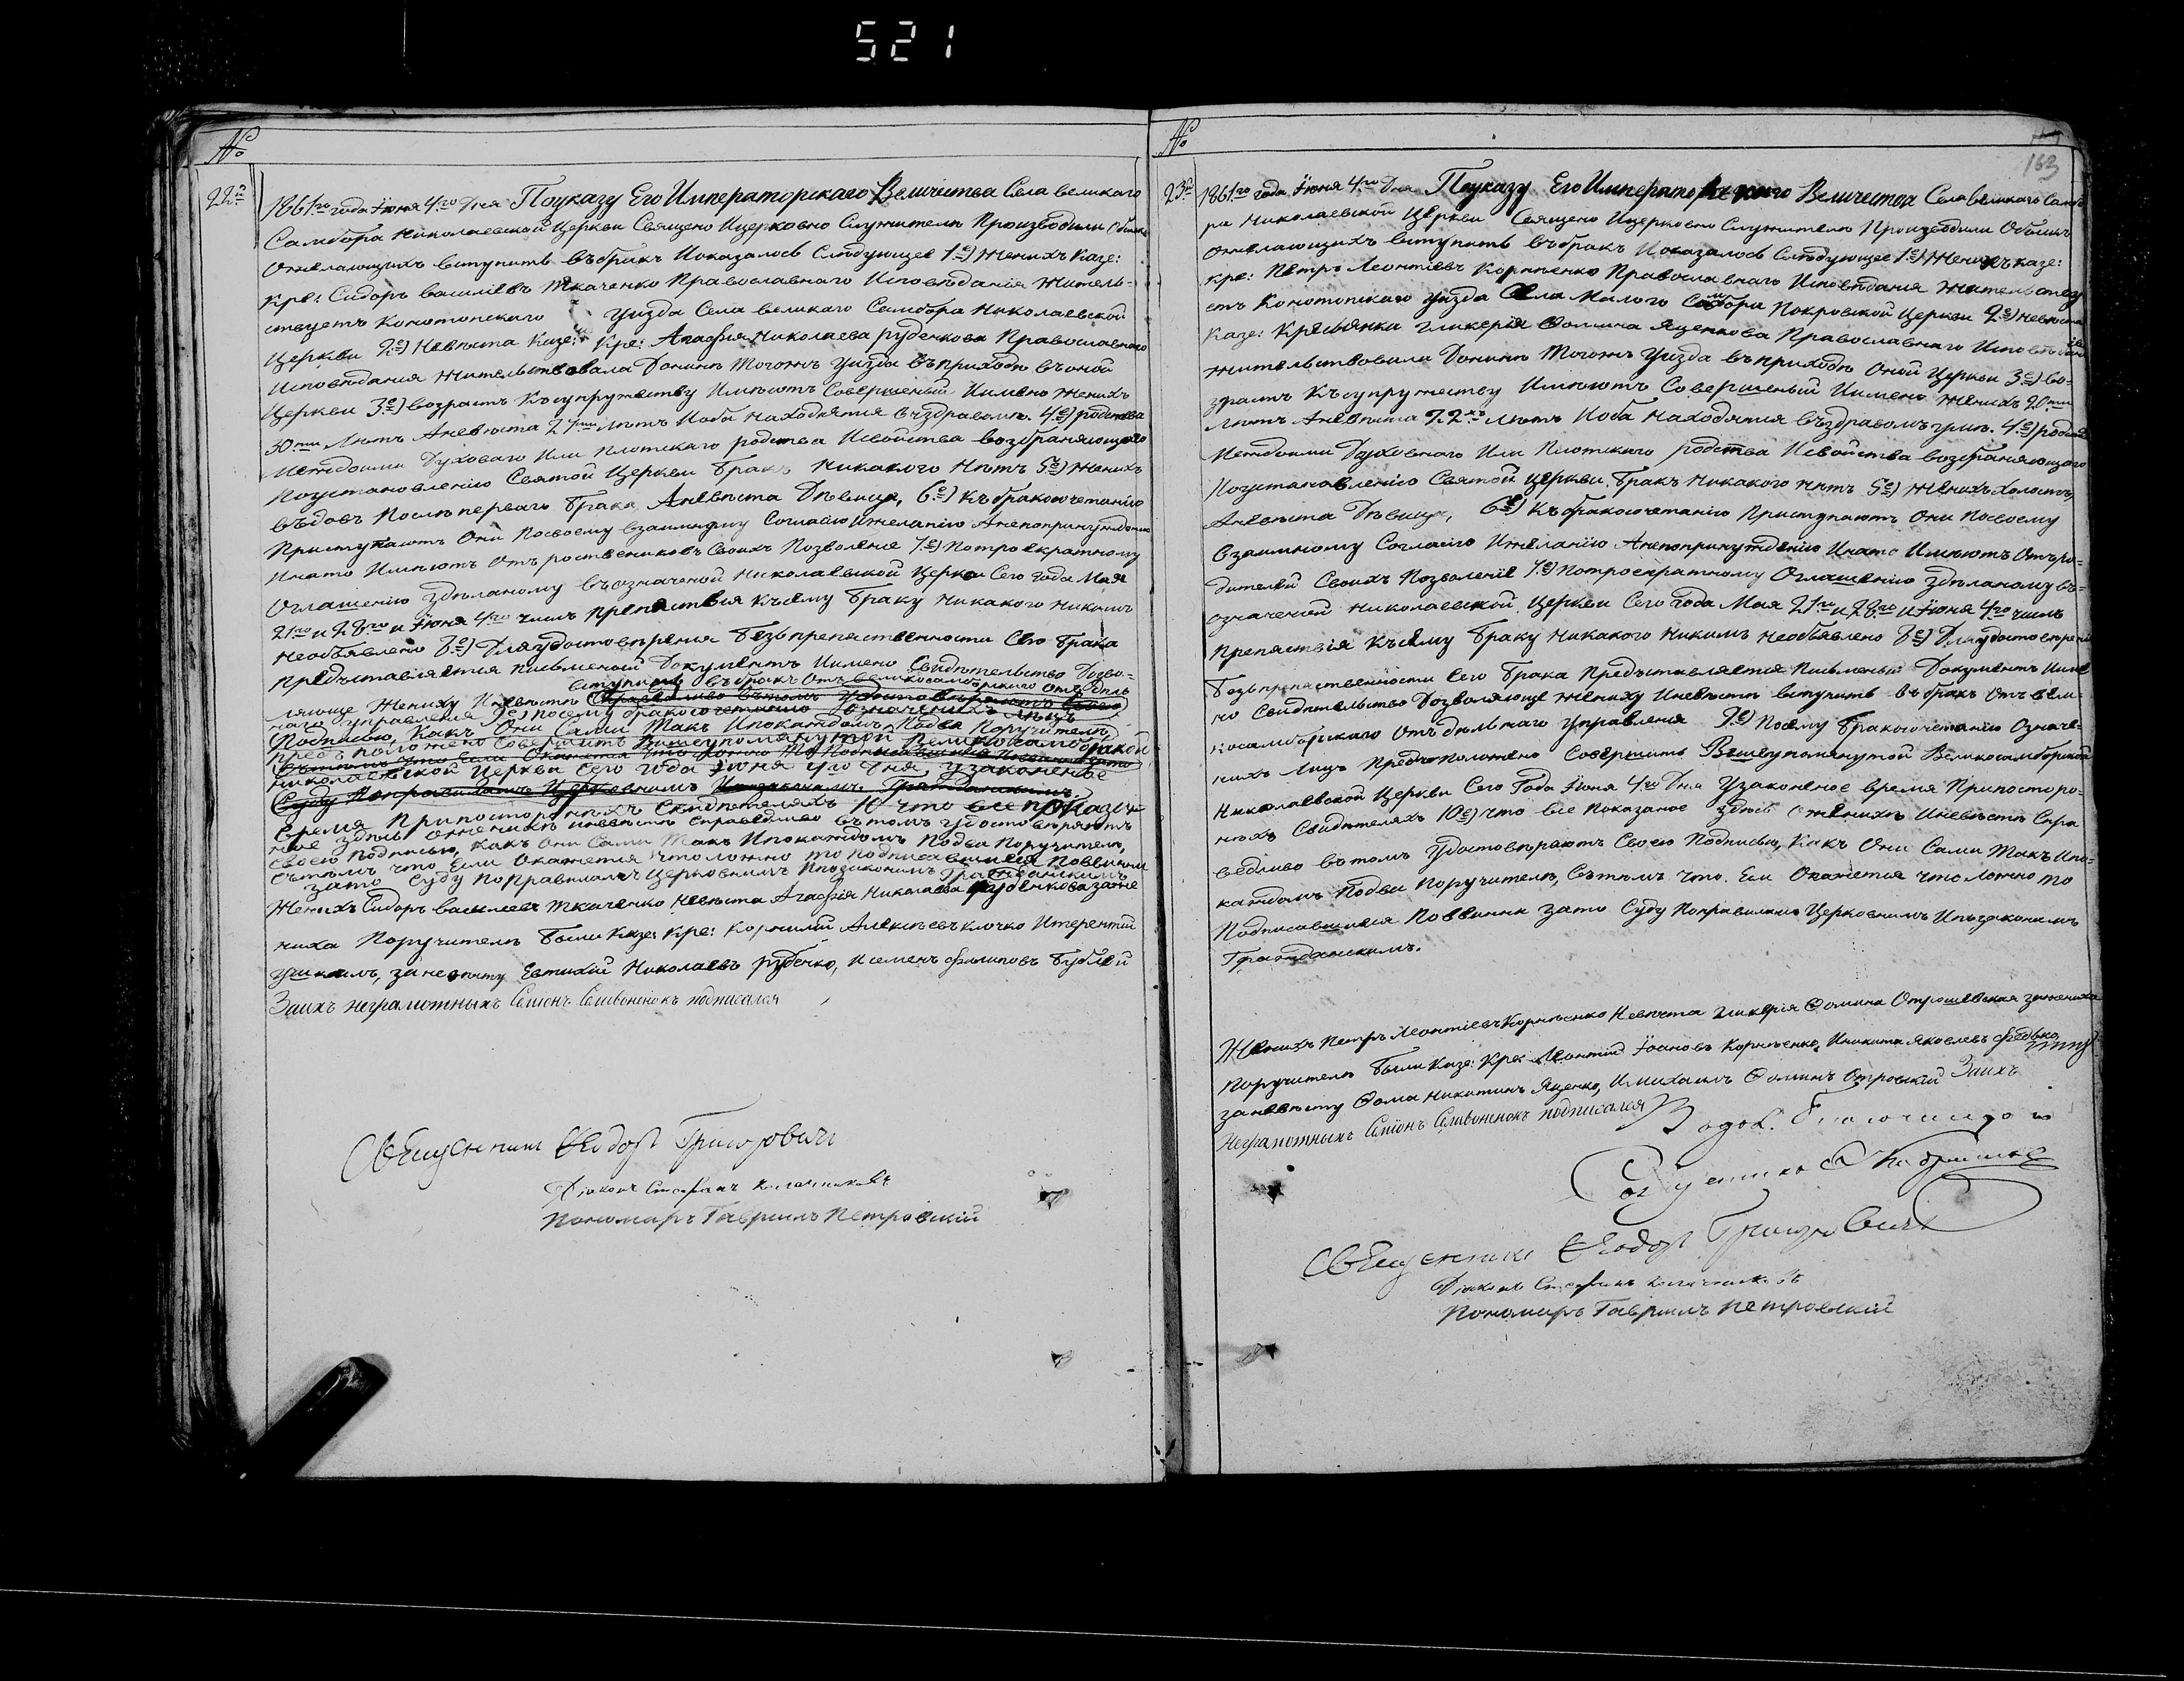 521
№
22й
1861го года Іюня 4го Дня Поуказу Его Императорскаго Величества Села великаго
Самбора Николаевской Церкви Священо Ицерковно Служители Производили Обыскъ
Ожелающихъ вступить въбракъ Иоказалось Слѣдующее 1е) Женихъ Казе:
Кре: Сидоръ Василіевъ Ткаченко Православнаго Исповѣданія Житель-
ствуетъ Конотопскаго Уизда Села великаго Самбора Николаевской
Церкви 2е) Невѣста Казе: Кре: Агафія Николаева руденкова Православнаго
Исповѣданія Жительствовала Донинѣ Тогожъ Уизда въприходѣ въоной
Церкви 3е) возрастъ Ксупружеству Имѣютъ Совершеный Иимено Женихъ
30ти Лѣтъ Аневѣста 24ти лѣтъ Иоба находятся въздравомъ. 4е) родства
Междоими Духоваго Или плотскаго родства Исвойства возбраняющаго
Поустановленію Святой Церкви Бракъ Никакого Нѣтъ 5е) Женихъ
въдовъ Послѣ перваго Брака, Аневѣста Дѣвица, 6е) Къбракосочетанію
Приступаютъ Они Посвоему взаимному Согласію Ижеланію Анепопринужденію
Инато Имѣютъ Отъ роствениковъ Своихъ Позволеніе 7е) Потроекратному
Оглашенію здѣланому въозначеной Николаевской Церкви Сего года Мая
21го и 28го и Іюня 4го числъ препяствія Късему Браку Никакого Никимъ
Необъявлено 8е) Дляудостовѣренія Безъпрепяственности Сего Брака
предъставляется письменый Документъ Иимено Свидѣтельство Дозво-
вступить въбракъ Отъ великосамборскаго Отъдѣль
ляюще Жениху Иневѣстѣ Справедливо вътомъ Удостовѣряютъ Своею
наго управленія 9е) Посему бракосочетанію Означенихъ Лицъ
Подписью, Какъ Они Сами Такъ Ипокаждомъ Подва Поручителѣ,
предъположено Совершить Вишеупомянутой Великосамборской
Сътѣмъ что Если Окажется что ложно То Подписавшиеся Повинни зато
Николаевской Церкви Сего года Іюня 4го Дня Узаконеное
Суду Поправиламъ Церковнимъ Ипозаконамъ Гражданскимъ.
время Припостороннихъ Свидѣтеляхъ 10 что все показа-
ное здѣсь Оженихѣ Иневѣстѣ Справедливо вътомъ удостовѣряютъ
Своею подписью, Какъ Они Сами Такъ Ипокаждомъ Подва Поручителѣ,
Сътѣмъ что Если Окажется что ложно то подписавшиеся Повинни
зато Суду Поправиламъ Церковнимъ Ипозаконимъ Гражданскимъ
Женихъ Сидоръ Василіевъ Ткаченко Невѣста Агафія Николаева руденкова заже
ниха Поручителѣ Были Казе: Кре: Корнилій Алексѣевъ Клочко Итерентій
за невѣсту Евтихій Николаевъ руденко, Исеменъ Филиповъ Бублей
Заихъ неграмотныхъ Семіонъ Семвоненокъ подписался
Священникъ Ѳеодоръ Григоровичъ
Діаконъ Стефанъ
Пономаръ Гавріилъ Петровскій
№
163
23й
1861го года Іюня 4го Дня Поуказу Его Императорскаго Величества Села великаго Самбо
ра Николаевской Церкви Священо Ицерковно Служителѣ Производили Обыскъ
Ожелающихъ вступить въбракъ Иоказалось Слѣдующее 1е) Женихъ Казе:
Кре: Петръ Леонтіевъ Корнѣенко Православнаго Исповѣданія Жительству
етъ Конотопскаго уизда Села Малого Самбора Покровской Церкви 2е) Невѣста
Казе: Кресьянка Гликерія Ѳомина Яценкова Православнаго Исповѣданія
Жительствовала Донинѣ Тогожъ Уизда въприходѣ Оной Церкви 3е) во-
зрастъ Късупружеству Имѣютъ Совершеный Иимено Женихъ 20ти
лѣтъ Аневѣста 22хъ лѣтъ Иоба находятся въздравомъ умѣ. 4е) родства
Междоими Духовнаго Или Плотскаго родства Исвойства возбраняющаго
Поустановленію Святой Церкви Бракъ Никакого нѣтъ 5е) Женихъ Холостъ,
Аневѣста Дѣвица, 6е) Къбракосочетанію Приступаютъ Они Посвоему
взаимному Согласію Ижеланію Анепопринужденію Инато Имѣютъ Отъро-
дителей Своихъ Позволеніе 7е) Потроекратному Оглашенію здѣланому въ-
означеной Николаевской Церкви Сего года Мая 21го и 28го и Іюня 4го числъ
Препяствія Късему Браку Никакого Никимъ Необъявлено 8е) Дляудостовѣренія
Безъпрепяственности Сего Брака Предъставляется Письменый Документъ Имме
но Свидѣтельство Дозволяюще Жениху Иневѣстѣ вступить въбракъ Отъ вели-
косамборскаго Отъдѣльнаго Управленія 9е) Посему Бракосочетанію Означе-
нихъ Лицъ Предъположено Совершить Вишеупомянутой Великосамборской
Николаевской Церкви Сего Года Іюня 4го Дня Узаконеное время Припосторо-
нихъ Свидѣтеляхъ 10е) что все Показаное здѣсь Оженихѣ Иневѣстѣ Спра
ведливо вътомъ Удостовѣряютъ Своею Подписью, Какъ Они Сами Такъ Ипо-
каждомъ Подва Поручителѣ, Сътѣмъ что Если Окажется что Ложно то
Подписавшиеся Повинни зато Суду Поправиламъ Церковнимъ Ипозаконимъ
Гражданскимъ.
Женихъ Петръ Леонтіевъ Корнѣенко Невѣста Гликерія Ѳомина Отрошевская зажениха
Поручителѣ Были Казе: Кре: Леонтій Іоановъ Корнѣенко, Иникита Яковлевъ Федько,
заневѣсту Ѳома Никитинъ Яценко, Имихаилъ Ѳоминъ Отровскій Заихъ
Неграмотныхъ Семіонъ Семвоненокъ подписался
Священникъ Ѳеодоръ Григоровичъ
Діаконъ Стефанъ
Пономаръ Гавріилъ Петровскій